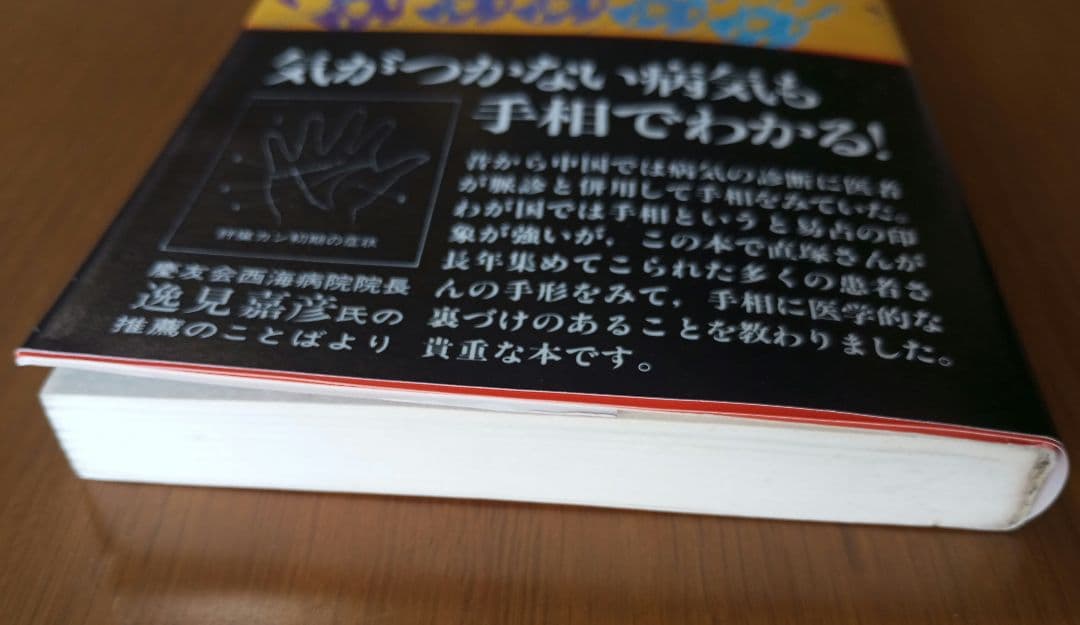 気がつかない病気も
手相でわかる!
昔から中国では病気の診断に医者
が脈診と併用して手相をみていた。
わが国では手相というと易占の印
象が強いが、この本で直塚さんが
長年集めてこられた多くの患者さ
んの手形をみて、手相に医学的な
裏づけのあることを教わりました。
貴重な本です。
肝臓ガン初期の症状
慶友会西海病院院長
逸見嘉彦氏の
推薦のことばより